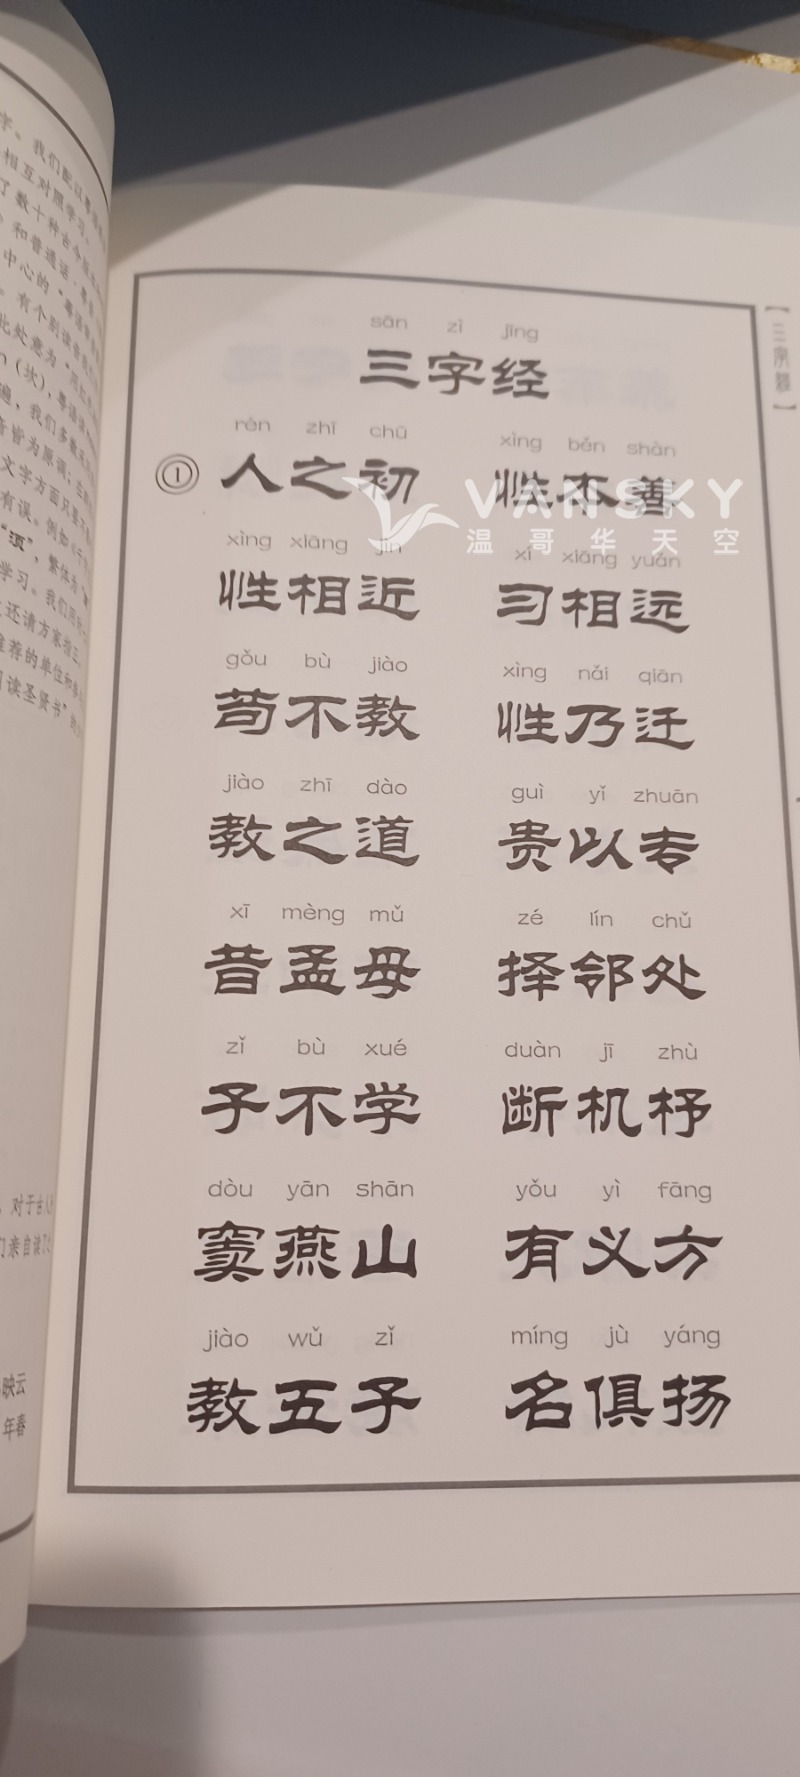 字。我们配以
相互对照学习。
了数十种古今版
和普通话
中心的“粤语
有个别读音
此处意为“
n（坎），粤语读
遍，我们多数
音皆为原调；
文字方面只要
有误。例如《千
“须”，繁体为
学习。我们
还请方家指正
推荐的单位和
读圣贤书”的
对于古人
们亲自读了
映云
年春
【三字经】
sān zì jīng
三字经
rén zhī chū xìng běn shàn
① 人之初 性本善
VANSKY
温哥华天空
xìng xiāng jìn xí xiāng yuǎn
性相近 习相远
gǒu bù jiào xìng nǎi qiān
苟不教 性乃迁
jiào zhī dào guì yǐ zhuān
教之道 贵以专
xī mèng mǔ zé lín chǔ
昔孟母 择邻处
zǐ bù xué duàn jī zhù
子不学 断机杼
dòu yān shān yǒu yì fāng
窦燕山 有义方
jiào wǔ zǐ míng jù yáng
教五子 名俱扬